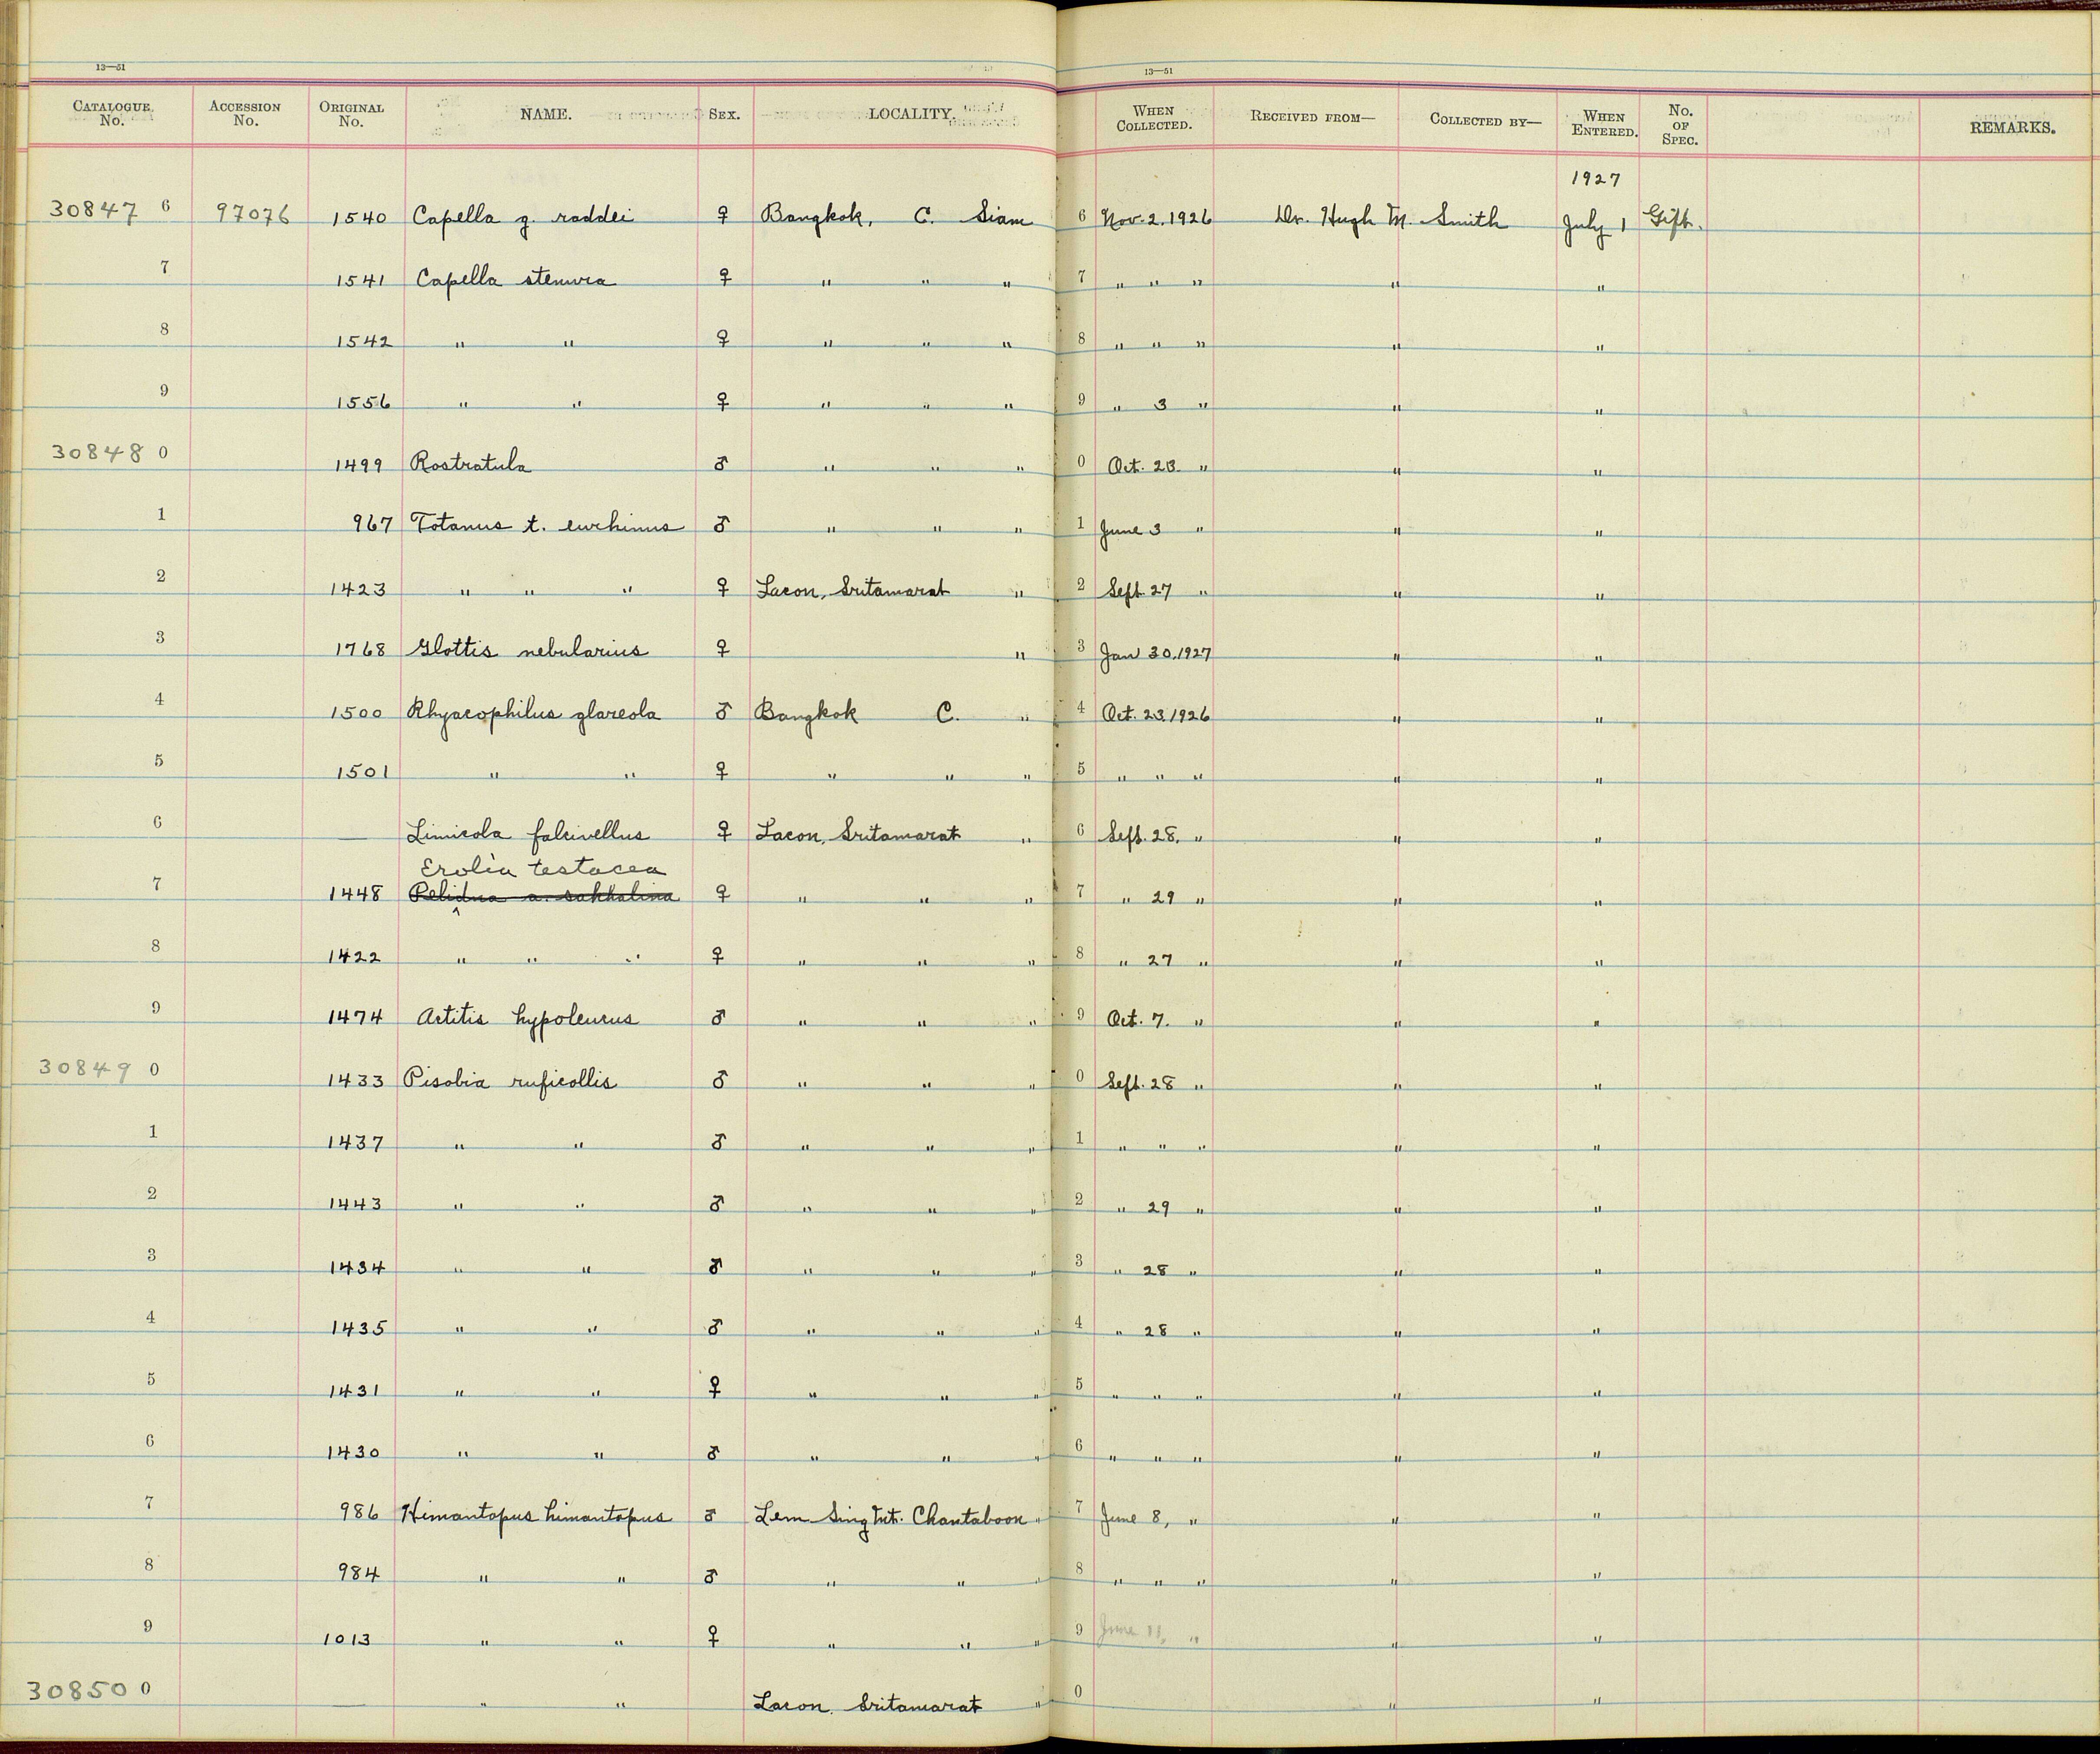 13—51 13—51
CATALOGUE No. ACCESSION No. ORIGINAL No. NAME. SEX. LOCALITY. WHEN COLLECTED. RECEIVED FROM— COLLECTED BY— WHEN ENTERED. No. OF SPEC. REMARKS.
1927
30847 6 97076 1540 Capella g. raddei ♀ Bangkok, C. Siam 6 Nov. 2. 1926 Dr. Hugh M. Smith July 1 Gift.
7 1541 Capella stenura ♀ " " " 7 " " " " "
8 1542 " " ♀ " " " 8 " " " " "
9 1556 " " ♀ " " " 9 " 3 " " "
30848 0 1499 Rostratula ♂ " " " 0 Oct. 23 " " "
1 967 Totanus t. eurhinus ♂ " " " 1 June 3 " " "
2 1423 " " " ♀ Lacon, Sritamarat " 2 Sept 27 " " "
3 1768 Glottis nebularius ♀ " 3 Jan 30, 1927 " "
4 1500 Rhyacophilus glareola ♂ Bangkok C. " 4 Oct. 23, 1926 " "
5 1501 " " ♀ " " " 5 " " " " "
6 — Limicola falcinellus ♀ Lacon, Sritamarat " 6 Sept. 28, " " "
Erolia testacea
7 1448 Pelidna a. sakhalina ♀ " " " 7 " 29 " " "
8 1422 " " " ♀ " " " 8 " 27 " " "
9 1474 Actitis hypoleucus ♂ " " " 9 Oct. 7. " " "
30849 0 1433 Pisobia ruficollis ♂ " " " 0 Sept. 28 " " "
1 1437 " " ♂ " " " 1 " " " " "
2 1443 " " ♂ " " " 2 " 29 " " "
3 1434 " " ♂ " " " 3 " 28 " " "
4 1435 " " ♂ " " " 4 " 28 " " "
5 1431 " " ♀ " " " 5 " " " " "
6 1430 " " ♂ " " " 6 " " " " "
7 986 Himantopus himantopus ♂ Lem Sing Chantaboon " 7 June 8, " " "
8 984 " " ♂ " " " 8 " " " " "
9 1013 " " ♀ " " " 9 June 11, " " "
30850 0 — " " Lacon. Sritamarat " 0 " "